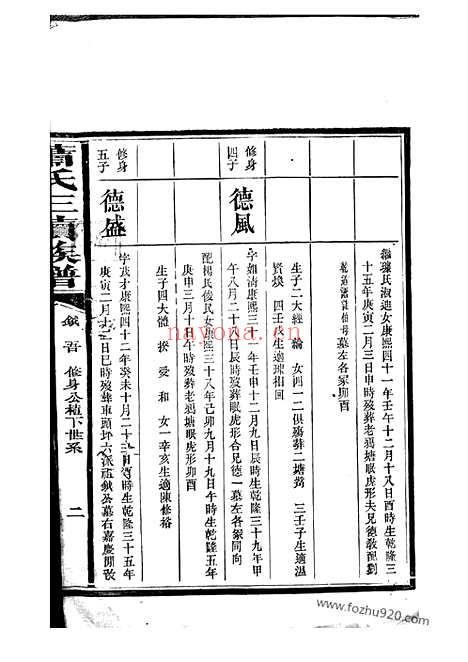 繼璩氏淑進女康熙四十一年壬午十二月十八日酉時生乾隆三
十五年庚寅二月三日申時歿葬老鴉塘眠虎形夫兄德敎配劉
墓左各冢卯酉
修身
四子
德風
字如清康熙三十一年壬申十二月九日辰時生乾隆三十九年甲
午八月二十日辰時歿葬眠虎形合兄德一墓左各冢同向
生子二大經 綸 女四一二俱殤葬二塘背 三壬子生適溫
賢煥 四壬子生適璩相回
配楊氏俊民女康熙三十八年己卯九月十九日午時生乾隆五年
庚申三月十四日午時歿葬老鴉塘眠虎形卯酉
生子四大體 愛 和 女一辛亥生適陳修裕
修身
五子
德盛
字茂才康熙四十二年癸未十月二十三日時生乾隆三十五年
庚寅二月十二日巳時歿葬車頭坪六派祖鉞公墓右嘉慶間改
蕭氏三續族譜
修身公植下世系
二
nayona.cn
www.fozhu920.com